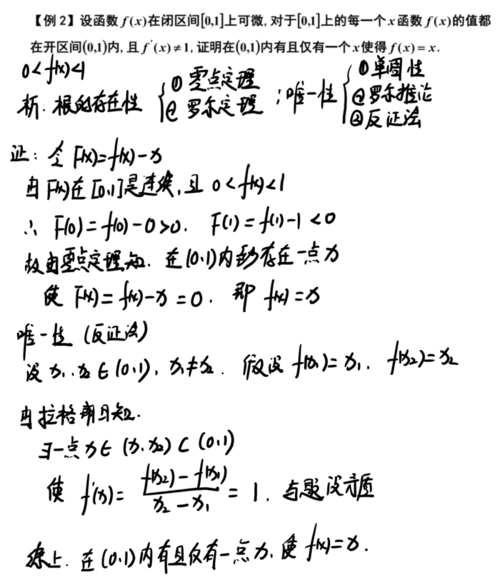 【例 2】设函数 f(x)在闭区间[0,1]上可微,对于[0,1]上的每一个 x 函数 f(x)的值都
在开区间(0,1)内,且 f'(x)≠1,证明在(0,1)内有且仅有一个 x 使得 f(x)=x.
0<f(x)<1
析:根的存在性 {①零点定理 ②罗尔定理 ;唯一性 {①单调性 ②罗尔推论 ③反证法
证:令 F(x)=f(x)-x
由F(x)在[0,1]是连续,且 0<f(x)<1
∴ F(0)=f(0)-0>0, F(1)=f(1)-1<0
故由零点定理知.在(0,1)内至少存在一点x
使 F(x)=f(x)-x=0. 即 f(x)=x
唯一性(反证法)
设 x₁.x₂∈(0,1), x₁≠x₂. 假设 f(x₁)=x₁, f(x₂)=x₂
由拉格朗日知.
∃一点x∈(x₁,x₂)⊂(0,1)
使 f'(x)= (f(x₂)-f(x₁))/(x₂-x₁) = 1. 与题设矛盾
综上.在(0,1)内有且仅有一点x,使 f(x)=x.